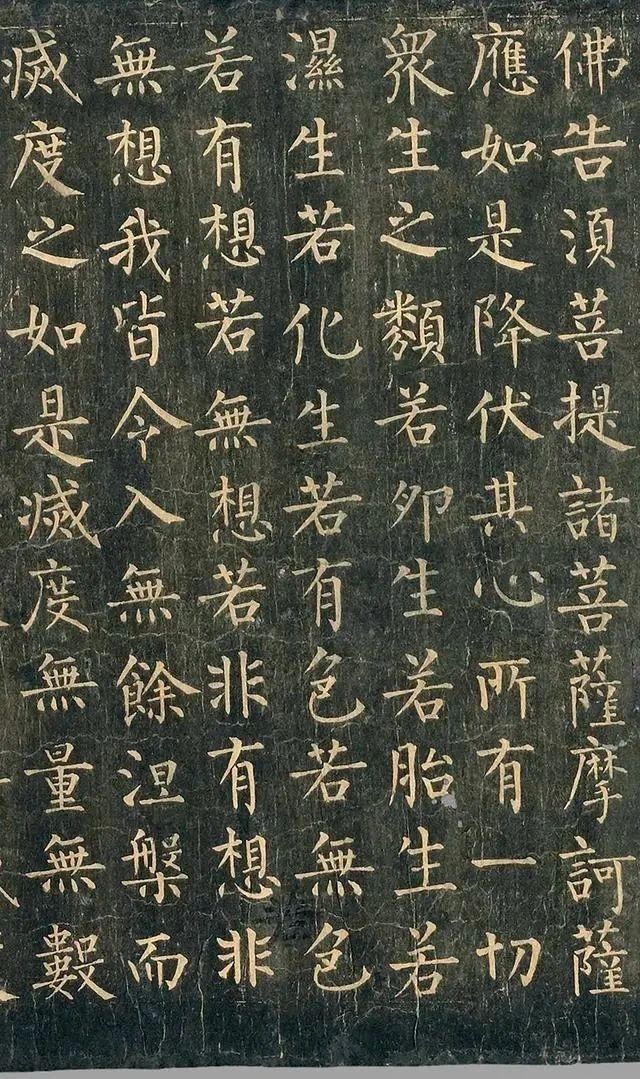 佛告須菩提諸菩薩摩訶薩
應如是降伏其心所有一切
衆生之類若卵生若胎生若
濕生若化生若有色若無色
若有想若無想若非有想非
無想我皆令入無餘涅槃而
滅度之如是滅度無量無數